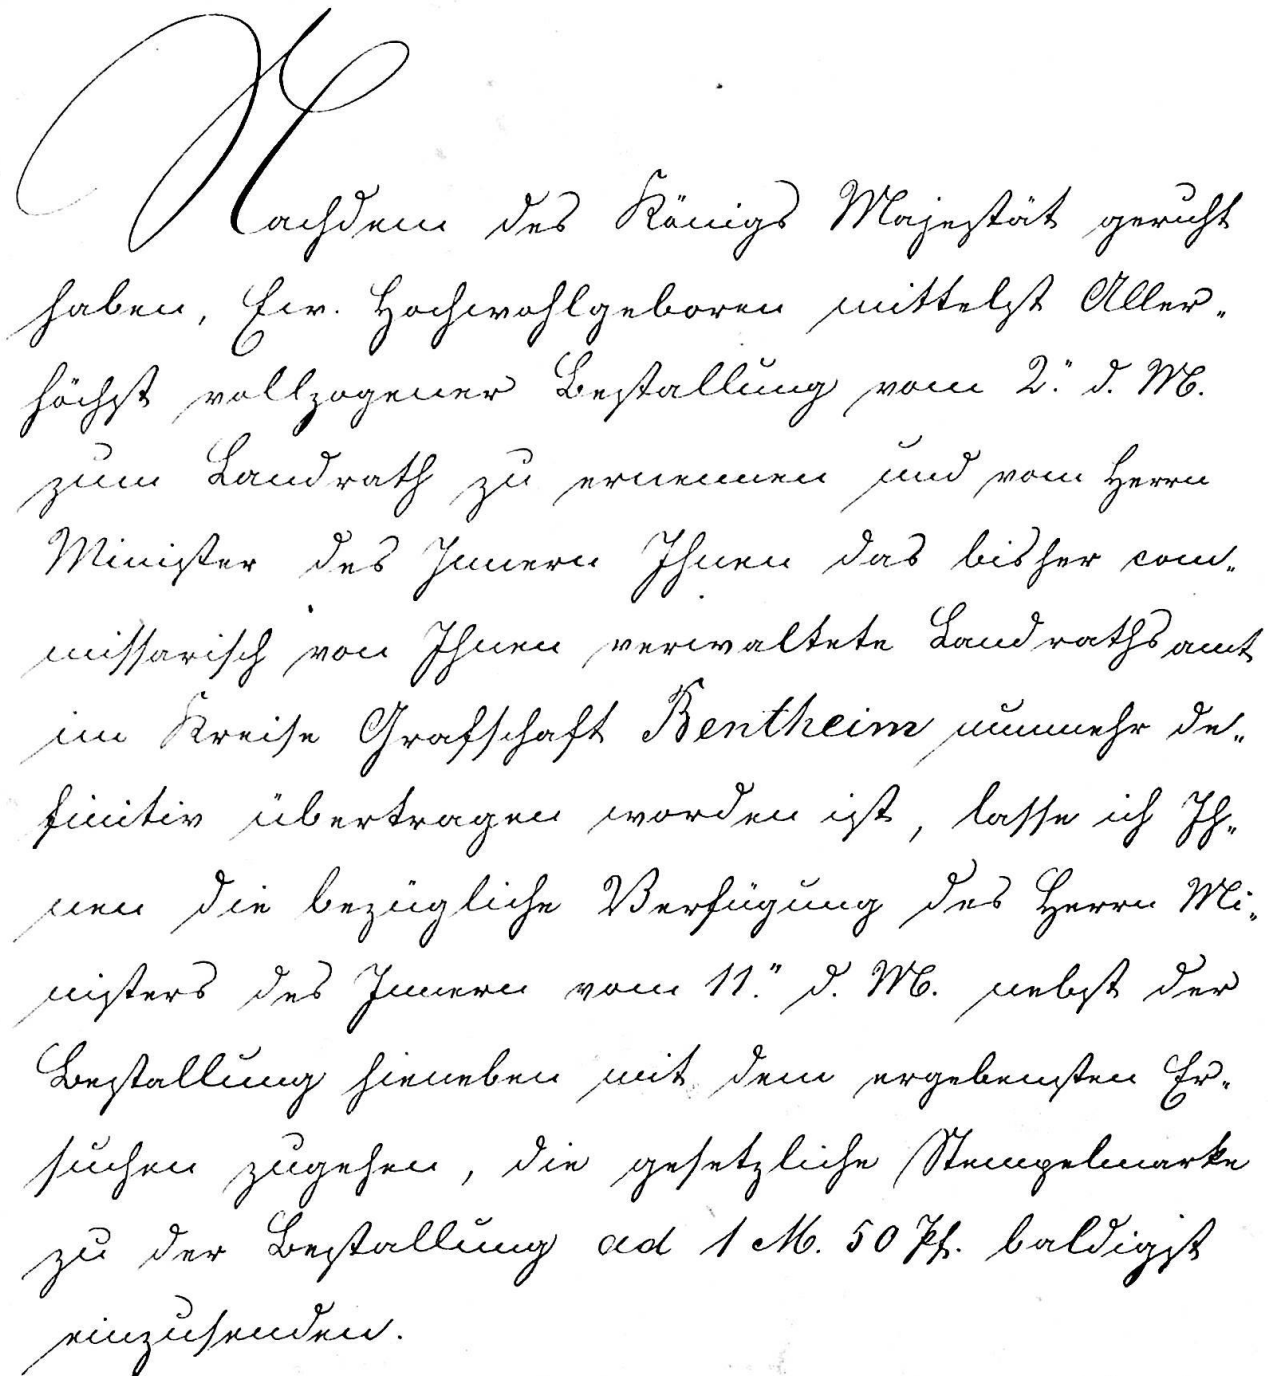 Nachdem des Königs Majestät geruht
haben, Ew. Hochwohlgeboren mittelst Aller-
höchst vollzogener Bestallung vom 2. d. M.
zum Landrath zu ernennen und vom Herrn
Minister des Innern Ihnen das bisher com-
missarisch von Ihnen verwaltete Landrathsamt
im Kreise Grafschaft Bentheim nunmehr de-
finitiv übertragen worden ist, lasse ich Ih-
nen die bezügliche Verfügung des Herrn Mi-
nisters des Innern vom 11. d. M. nebst der
Bestallung hieneben mit dem ergebensten Er-
suchen zugehen, die gesetzliche Stempelmarke
zu der Bestallung ad 1 M. 50 Pf. baldigst
einzusenden.